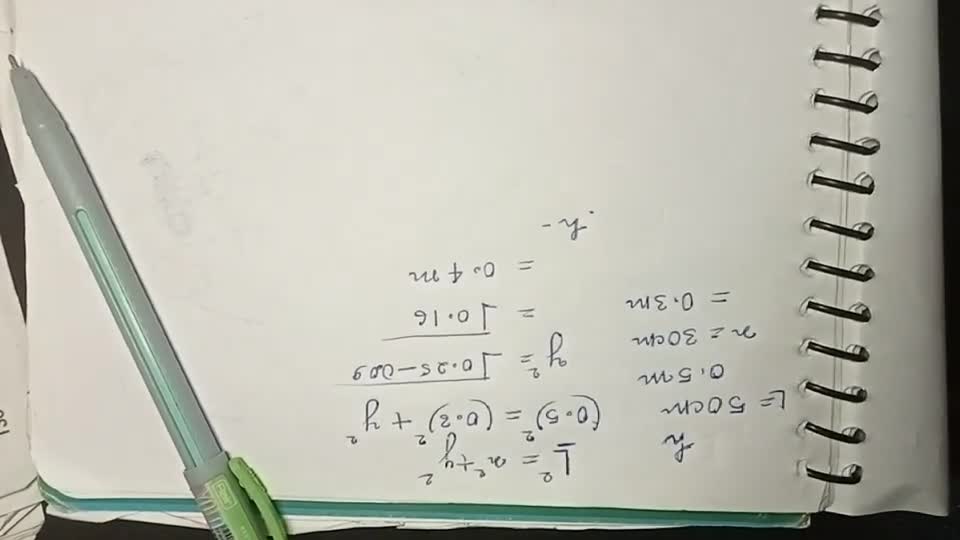 h
L = 50cm
0.5m
x = 30cm
= 0.3m
L² = x² + y²
(0.5)² = (0.3)² + y²
y² = √0.25-0.09
= √0.16
= 0.4m
h -